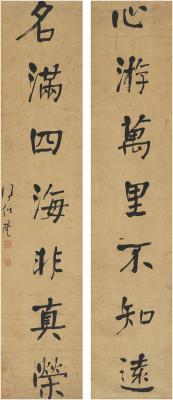 心游萬里不知遠
名滿四海非真榮
何紹基